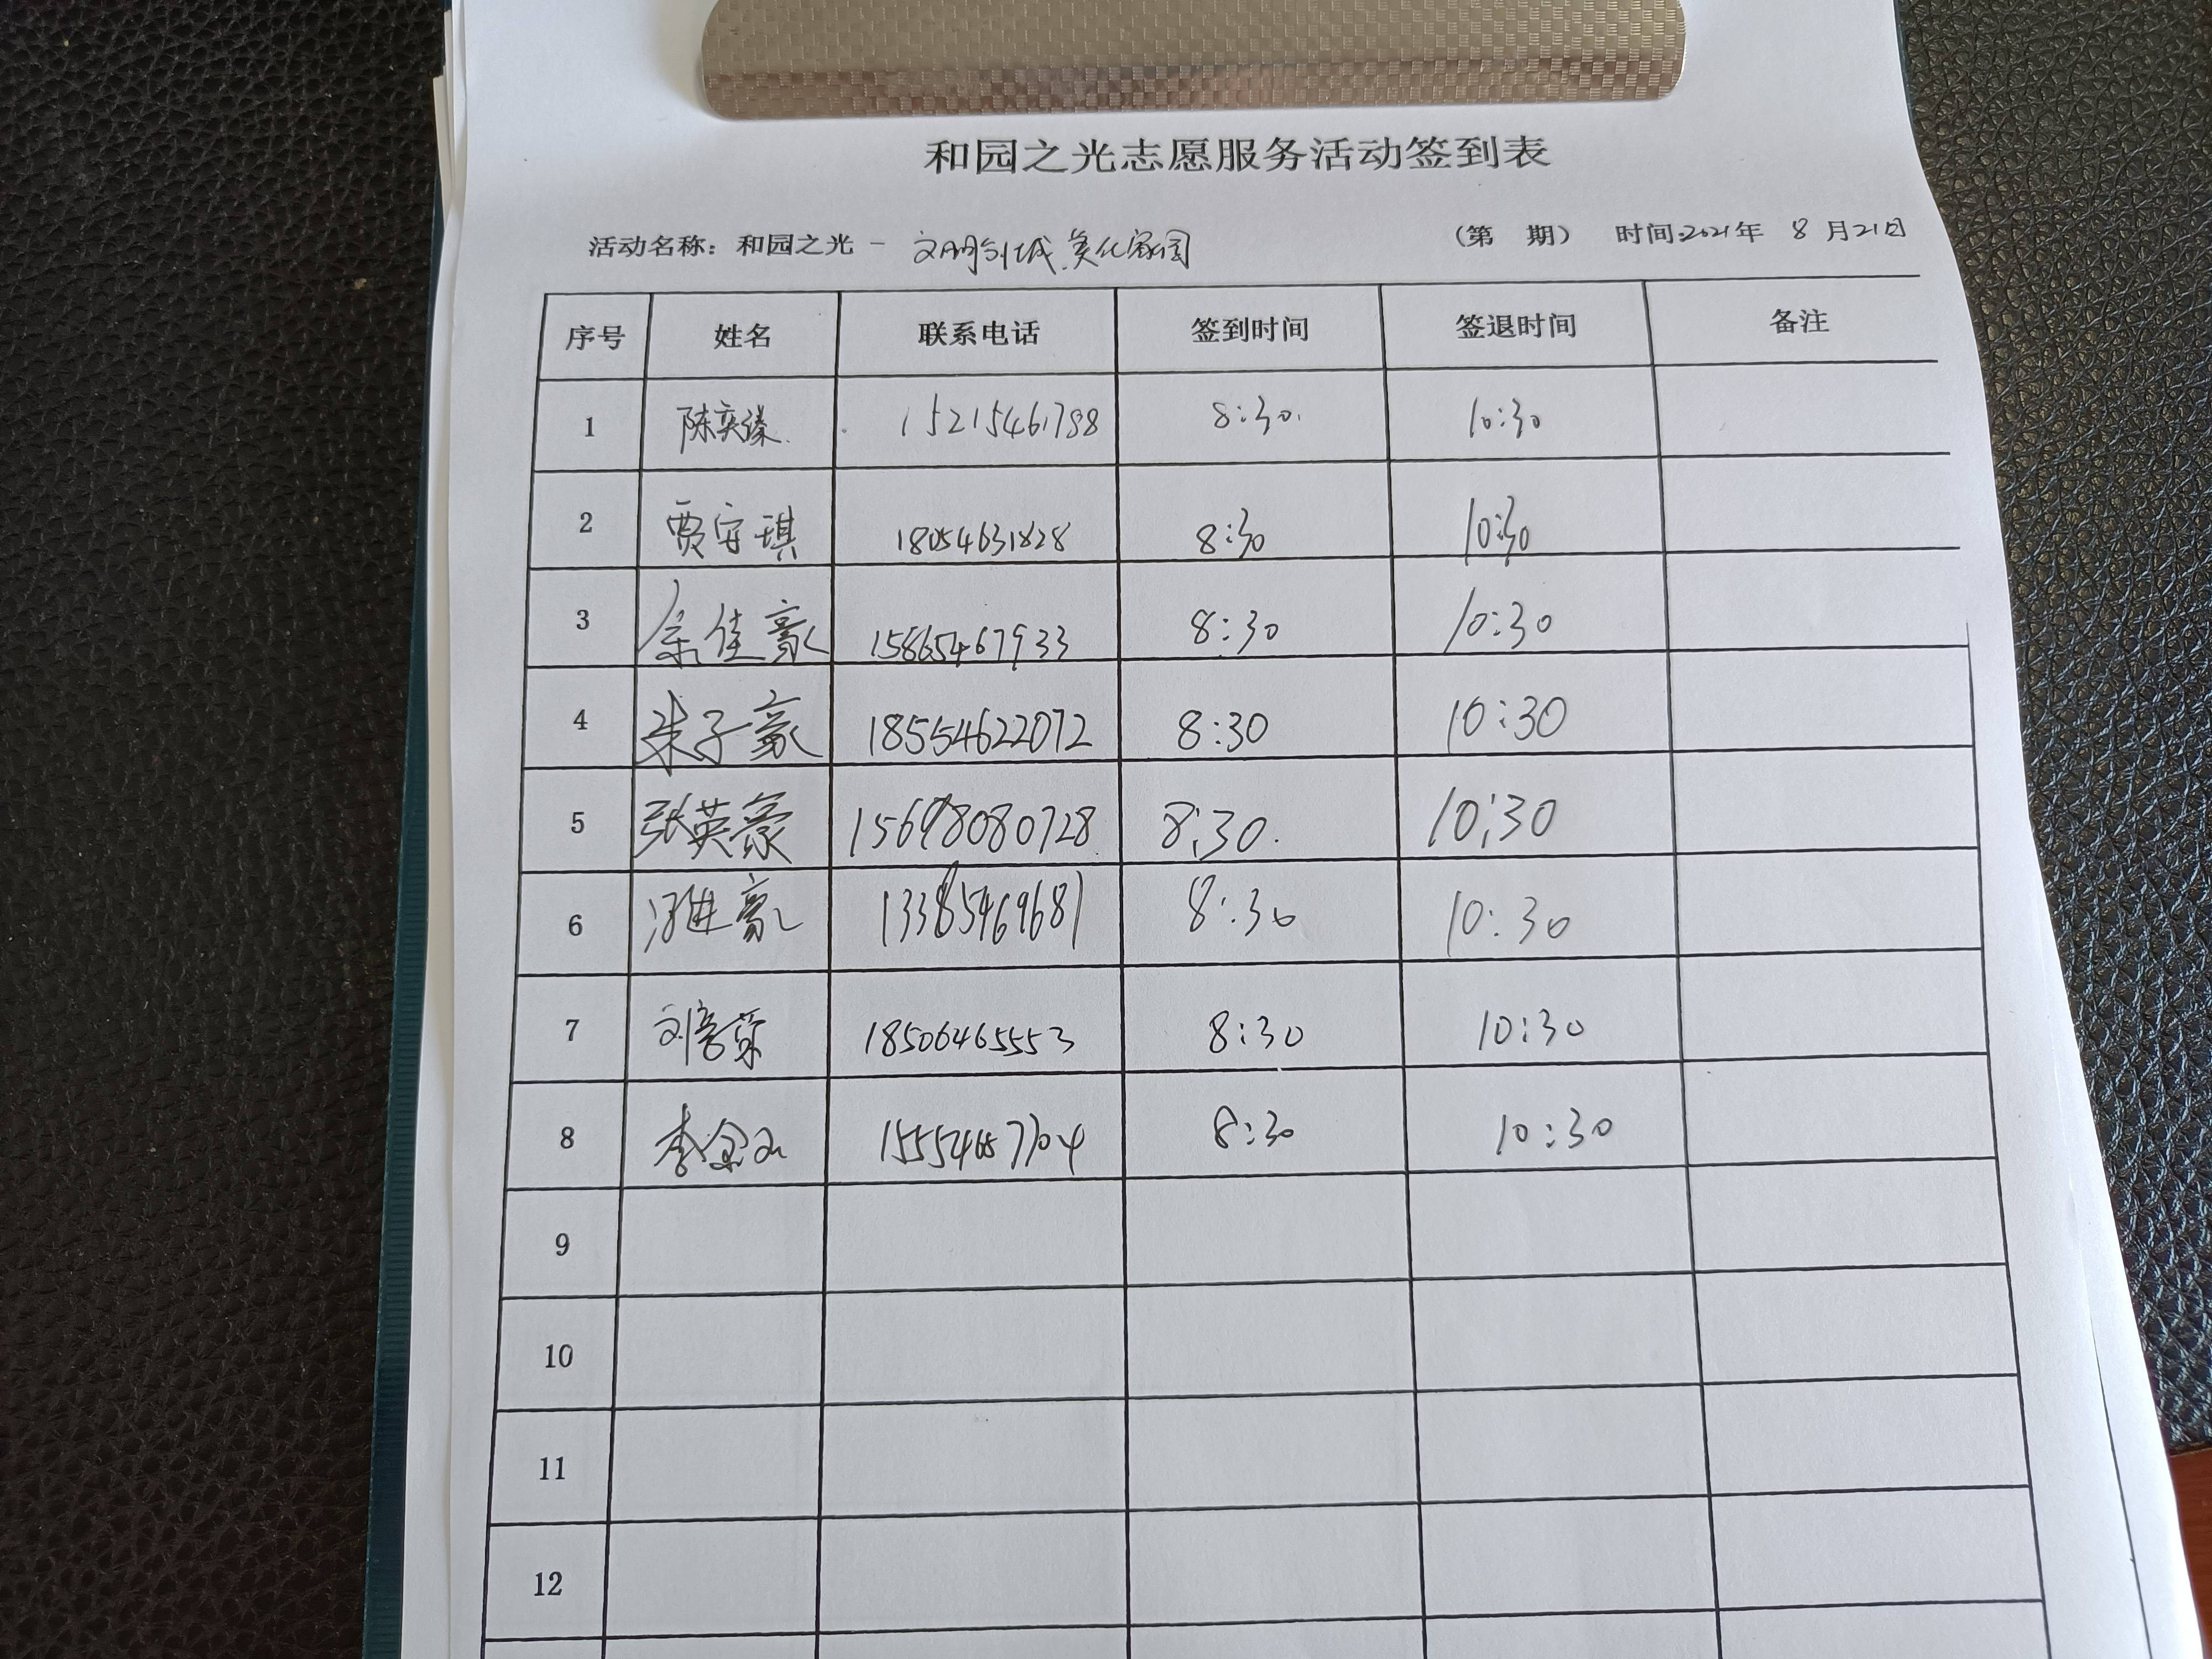 和园之光志愿服务活动签到表
活动名称：和园之光 - 文明创城.美化家园 （第 期） 时间:2021年 8月21日
序号 姓名 联系电话 签到时间 签退时间 备注
1 陈奕臻 15215461798 8:30. 10:30
2 贾安琪 18054631828 8:30 10:30
3 余佳豪 15865467933 8:30 10:30
4 朱子豪 18554622072 8:30 10:30
5 张英豪 15698080728 8:30. 10:30
6 13385469681 8:30 10:30
7 18506465553 8:30 10:30
8 8:30 10:30
9
10
11
12